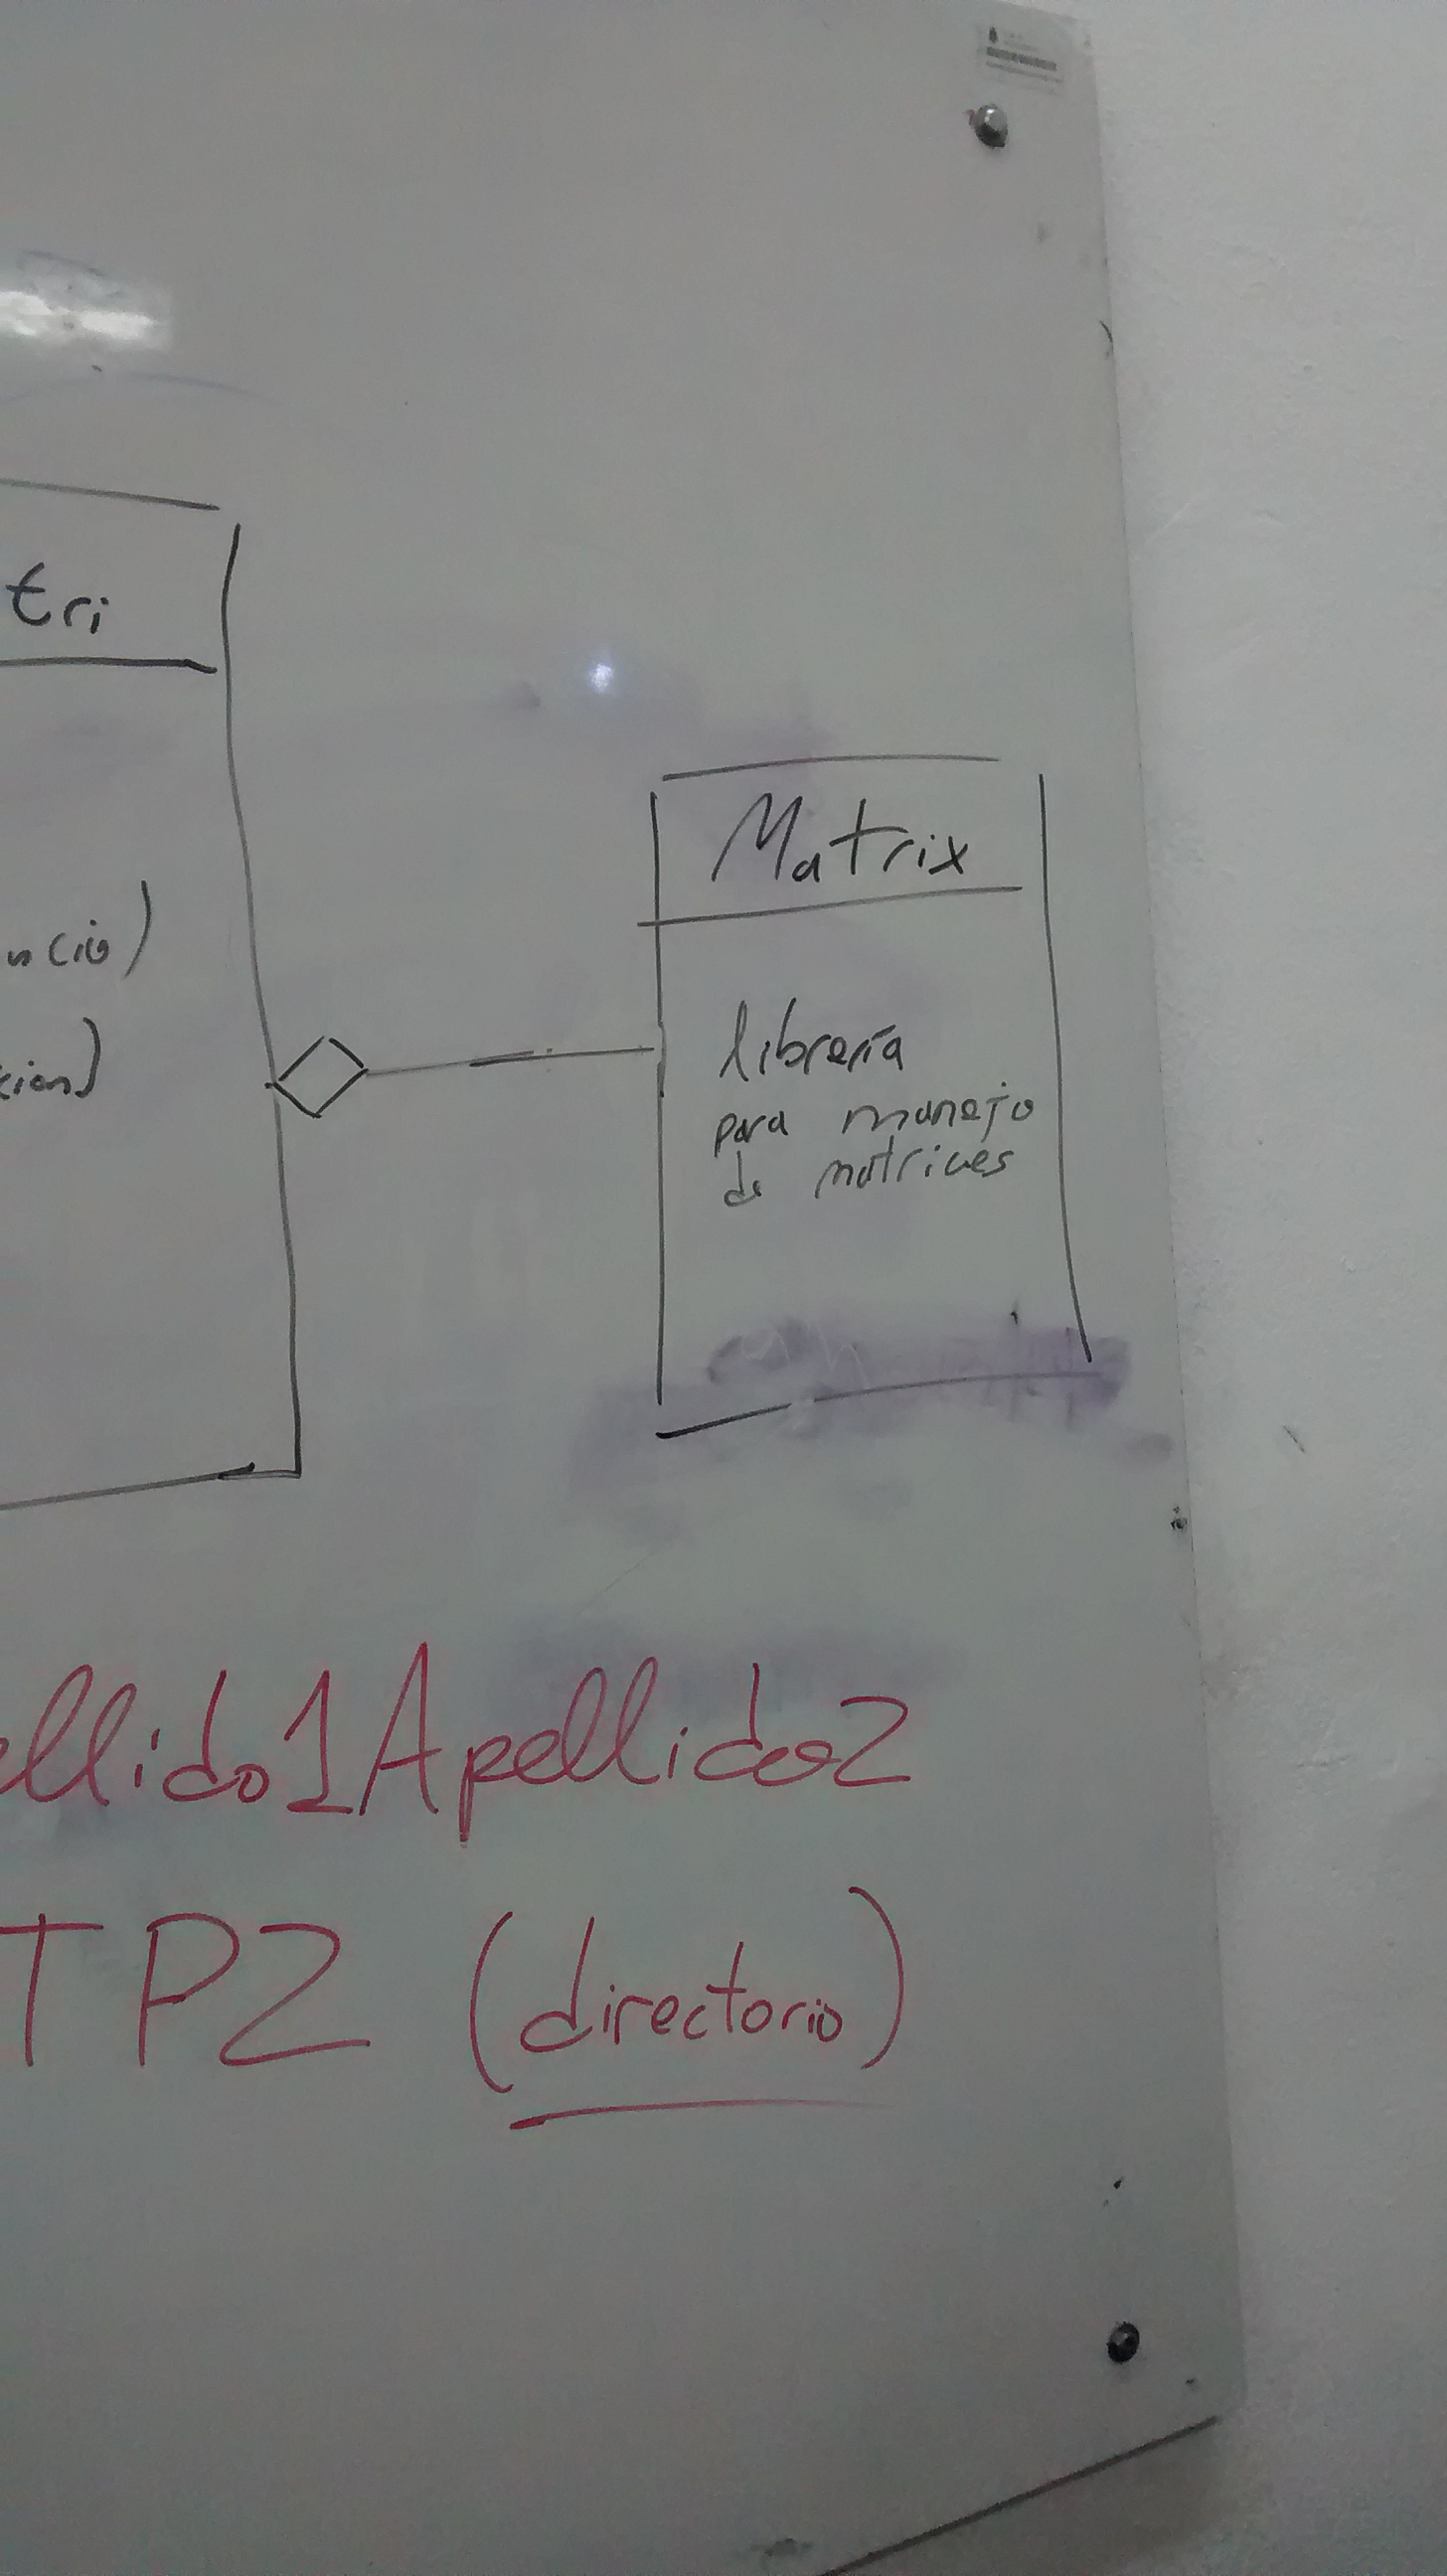 tri
ncio)
cion)
Matrix
librería
para manejo
de matrices
ellido1Apellido2
TP2 (directorio)